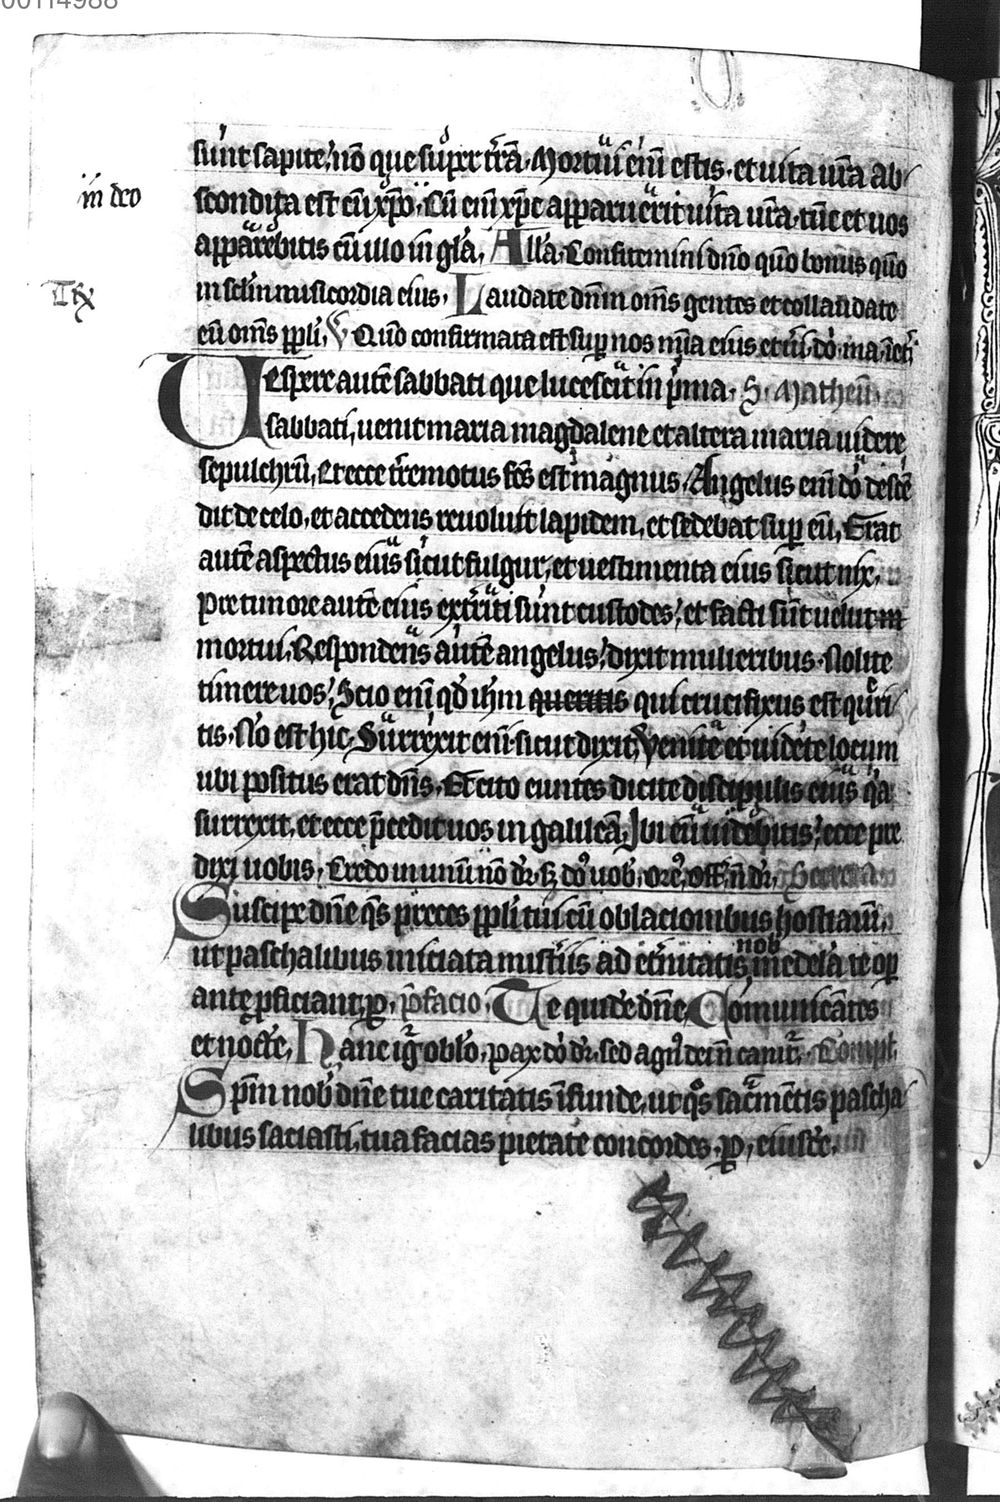 00114988
sunt sapite, nō que suꝑ t̄rā. Mortui eni estis. et uita ūra ab
in deo
scondita est cū xp̄o. Cū eni xp̄c apparuerit uita ūra. tūc et uos
apparebitis cū illo in gl̄a. All̄a. Confitemini dn̄o qm̄o bonus qm̄o
Tx
in sc̄l̄m misericordia eius. Laudate dn̄m om̄s gentes et collaudate
eū om̄s pp̄li. V Qm̄o confirmata est suꝑ nos m̄ia eius et
Vespere autē sabbati que lucescit in p̄ma. S. Matheū
sabbati, uenit maria magdalene et altera maria uidere
sepulchrū, Et ecce t̄remotus fc̄s est magnus. Angelus eni dō descē
dit de celo, et accedens reuoluit lapidem, et sedebat suꝑ eū, Erat
autē aspectus eius sicut fulgur, et uestimenta eius sicut nix,
pre timore autē eius exterriti sunt custodes, et facti sūt uelut m
mortui. Respondens autē angelus, dixit mulieribus. Nolite
timere uos, Scio eni qd̄ ih̄m queritis qui crucifixus est queri
tis. Nō est hic, Surrexit eni sicut dixit, Venite et uidete locum
ubi positus erat dn̄s. Et cito euntes dicite discipulis eius qa
surrexit, et ecce p̄cedit uos in galileā, Ibi eū uidebitis, ecce pre
dixi uobis, Credo in unū nō dr̄. S dō uob̄, or̄e, off n̄ dr̄, Secreta
Suscipe dn̄e qs̄ preces pp̄li tui cū oblacionibus hostiarū,
nob
ut paschalibus iniciata mist̄iis ad et̄nitatis medela te oꝑ
ante ꝓficiant, ꝑ. p̄facio, Te quidē dn̄e, Cōmunicātes
et noctē, Hanc ig̃ obl̄o, pax dō dr̄, sed agn̄ dei n̄ canit̃, Compl.
Spm̄ nob̄ dn̄e tue caritatis īfunde, ut qs̄ sac̄mētis pascha
libus saciasti, tua facias pietate concordes. ꝑ, eiusdē.